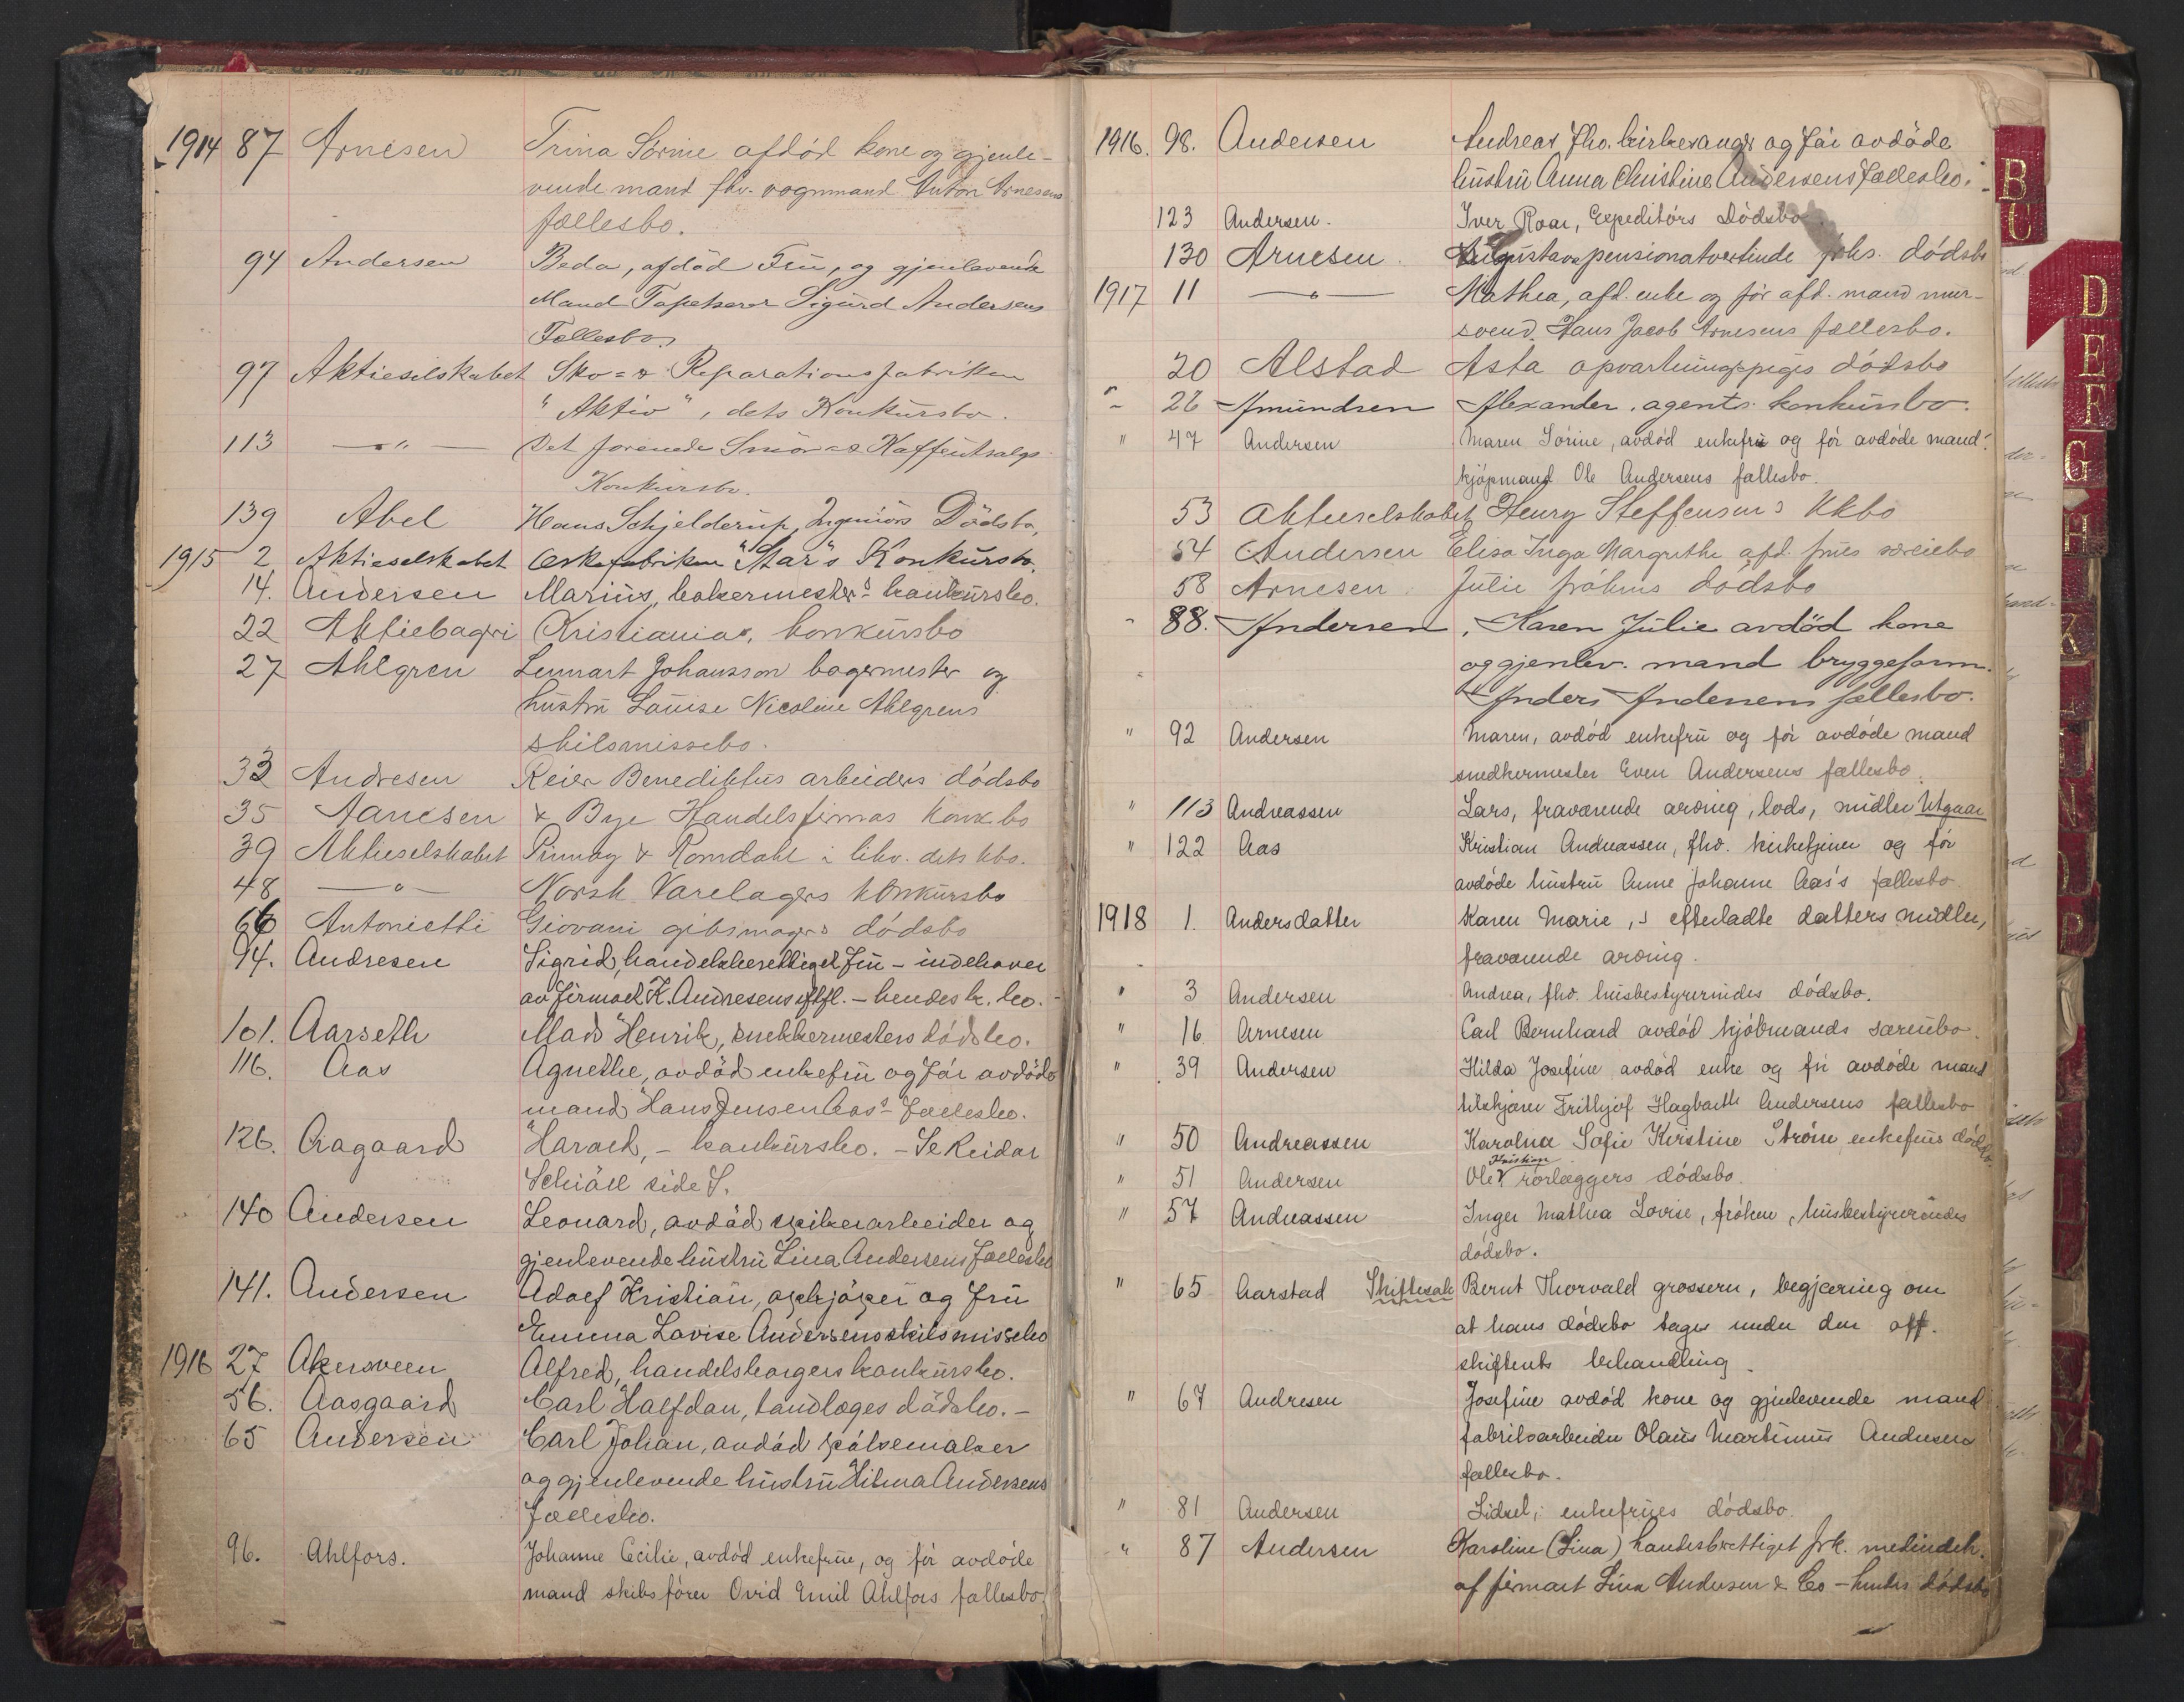 1914 87 Arnesen Trine Sörine afdöd kone og gjenle-
vende mand fhv. vognmand Anton Arnesens
fællesbo.
94 Andersen Beda, afdöd Frü, og gjenlevende
Mand Tapetserer Sigürd Andersens
Fællesbo.
97 Aktieselskabet Sko- & Reparationsfabriken
"Aktiv", dets Konkürsbo.
113 —"— Det forenede Smör- & Kaffeütsalgs
Konkürsbo.
139 Abel Hans Schjelderup, Ingeniörs Dödsbo,
1915 2 Aktieselskabet Æskefabriken "Star"s Konkürsbo.
14. Andersen Mariüs, bakermesters konkürsbo.
22 Aktiebageri Kristiania, konkürsbo
27 Ahlgren Lennart Johansson bagermester og
hüstrü Loüise Nicoline Ahlgrens
skilsmissebo.
33 Andresen Reier Benediktus arbeiders dödsbo
35 Aanesen & Bye Handelsfirmas konk.bo
39 Aktieselskabet & Romdahl i likv. dets kbo.
48 —"— Norsk Varelagers konkürsbo
66 Antonietti Giovani gibsmagers dödsbo
94. Andresen Sigrid, handelsberettiget Frü - indehaver
av firmaet K. Andresens eftfl. - hendes k. bo.
101. Aarseth Mads Henrik, snekkermesters dödsbo.
116. Aas Agnethe, avdöd enkefrü og för avdöde
mand Hans Jensen Aas's fællesbo.
126. Aagaard Harald, - konkürsbo. - Se Reidar
Schiöll side S.
140 Andersen Leonard, avdöd spikerarbeider og
gjenlevende hüstrü Lina Andersens fællesbo
141. Andersen Adolf Kristian, opkjöper og frü
Emma Lovise Andersens skilsmissebo
1916 27 Akersveen Alfred, handelsborgers konkürsbo.
56. Aasgaard Carl Halfdan, tandlæges dödsbo. -
65 Andersen Carl Johan, avdöd pölsemaker
og gjenlevende hüstrü Hilma Andersens
fællesbo.
96. Ahlfors. Johanne Cecilie, avdöd enkefrüe, og för avdöde
mand skibsförer Ovid Emil Ahlfors fællesbo
1916. 98. Andersen Andreas fhv. kirkesanger og för avdöde
hüstrü Anna Christine Andersens fællesbo.
123 Andersen. Iver Roar, Expeditörs Dödsbo.
130 Arnesen. Augusta pensionatvertinde frks. dödsbo
1917 11 —"— Mathea, afd. enke og för afd. mand mur-
svend. Hans Jacob Arnesens fællesbo.
20 Alstad Asta opvartningspiges dödsbo
" 26 Amundsen Alexander, agents konkürsbo.
" 47 Andersen Maren Sörine, avdöd enkefrü og för avdöde mand
kjöpmand Ole Andersens fællesbo.
53 Aktieselskabet Henry Steffensens Kkbo
54 Andersen Elise Inga Margrethe afd. frues særeiebo
58 Arnesen Jülie frökens dödsbo
" 88. Andersen, Karen Jülie avdöd kone
og gjenlev. mand bryggeform.
Anders Andersens fællesbo.
" 92 Andersen Maren, avdöd enkefrü og för avdöde mand
snedkermester Even Andersens fællesbo.
" 113 Andreassen Lars, fraværende arving, lods, midler Utgaar
" 122 Aas Kristian Andreassen, fhv. kirketjener og för
avdöde hüstrü Anne Johanne Aas's fællesbo
1918 1. Andersdatter Karen Marie,s efterladte datters midler,
fraværende arving.
" 3 Andersen Andrea, fhv. hüsbestyrerindes dödsbo.
" 16 Arnesen Carl Bernhard avdöd kjöbmands særeiebo.
" 39 Andersen Hilda Josefine avdöd enke og för avdöde mand
Frithjof Hagbarth Andersens fællesbo
" 50 Andreassen Karolina Sofie Kirstine Ström enkefrüs dödsbo.
Kristian
" 51 Andersen Ole rörlæggers dödsbo.
" 57 Andreassen Inger Mathea Lovise, fröken, hüsbestyrerindes
dödsbo.
" 65 Aarstad Skiftesak Bernt Thorvald grosserer, begjæring om
at hans dödsbo tages under den off.
skifterets behandling.
" 67 Andresen Josefine avdöd kone og gjenlevende mand
fabrikarbeider Olaüs Martiniüs Andresens
fællesbo.
" 81 Andersen Sidsel, enkefrües dödsbo.
" 87 Andersen Karoline (Lina) handelsberettiget frk. medindeh.
af firmaet Lina Andersen & Co - hendes dödsbo
B
U
D
E
F
G
H
K
N
P